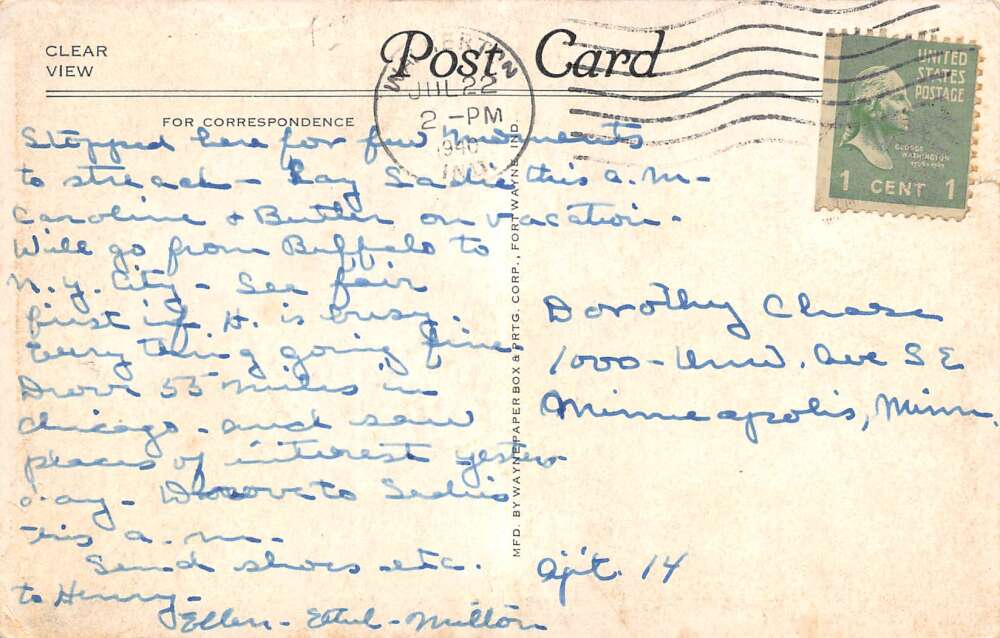 CLEAR
VIEW
Post Card
FOR CORRESPONDENCE
JUL 22
2 - PM
1940
IND.
UNITED
STATES
POSTAGE
GEORGE
WASHINGTON
1 CENT 1
Stopped here for few
to streach - Sadie this a.m -
Caroline & Butler on vacation.
Will go from Buffalo to
N.Y. City - See fair
first if H. is busy.
Everything going fine,
Drove 55 miles in
Chicago - and saw
places of interest yester-
day - Drove to Sadies
this a.m.
Send shoes etc.
to Henry -
Ellen - Ethel - Milton
MFD. BY WAYNE PAPER BOX & PRTG. CORP., FORT WAYNE, IND.
Dorothy Chase
1000 - Univ. Ave S E
Minneapolis, Minn.
Apt. 14